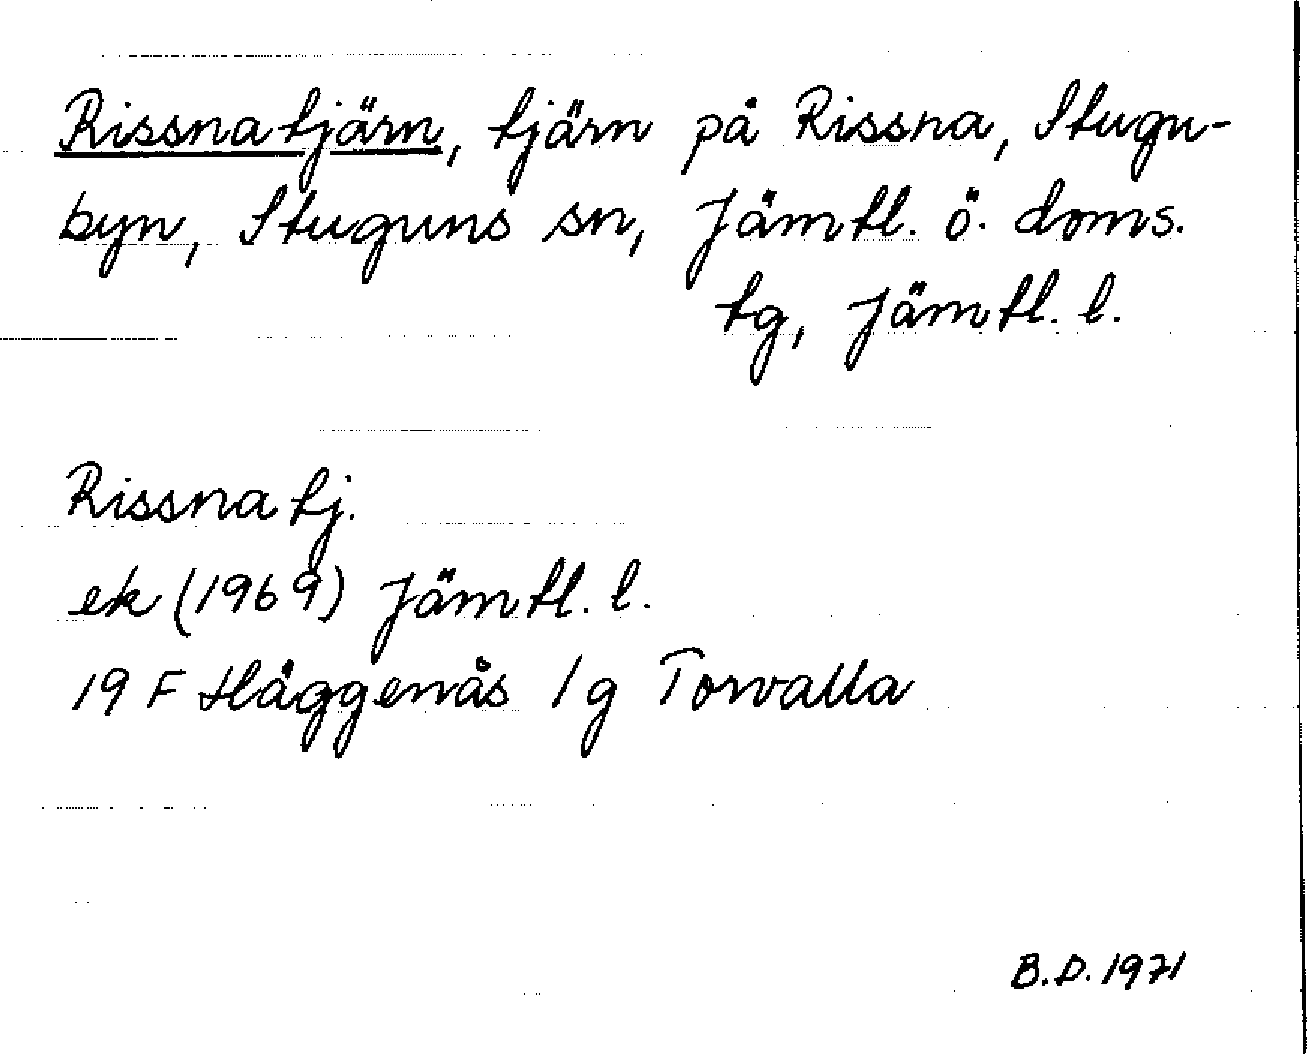 Rissnatjärn, tjärn på Rissna, Stugu-
byn, Stuguns sn, Jämtl. ö. doms.
tg, Jämtl. l.
Rissnatj.
ek (1969) Jämtl. l.
19 F Häggenås 1 g Torvalla
B.D. 1971